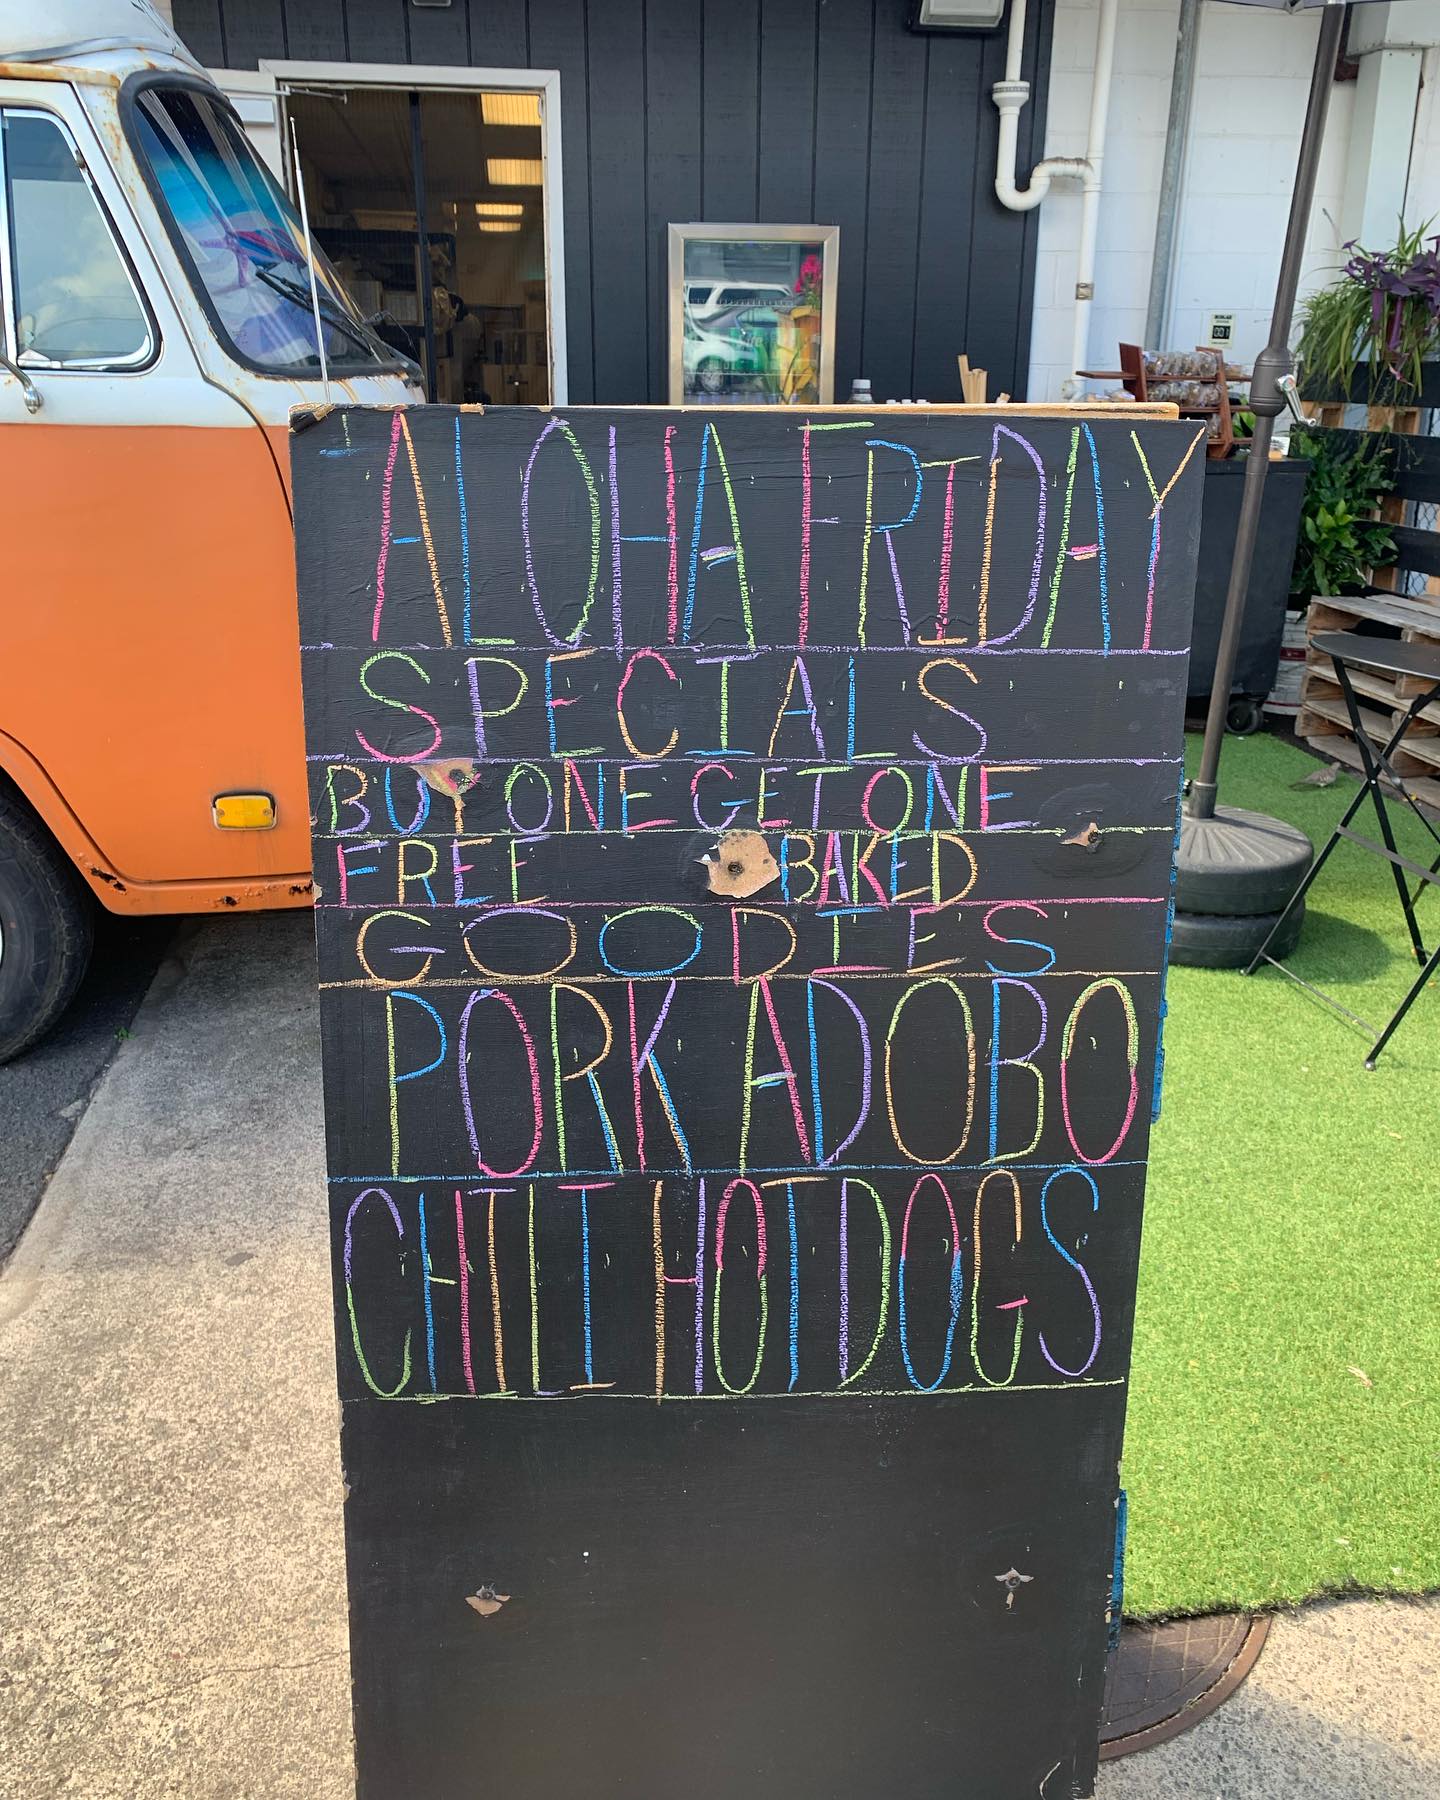 ALOHA FRIDAY
SPECIALS
BUY ONE GET ONE
FREE BAKED
GOODIES
PORK ADOBO
CHILI HOT DOGS